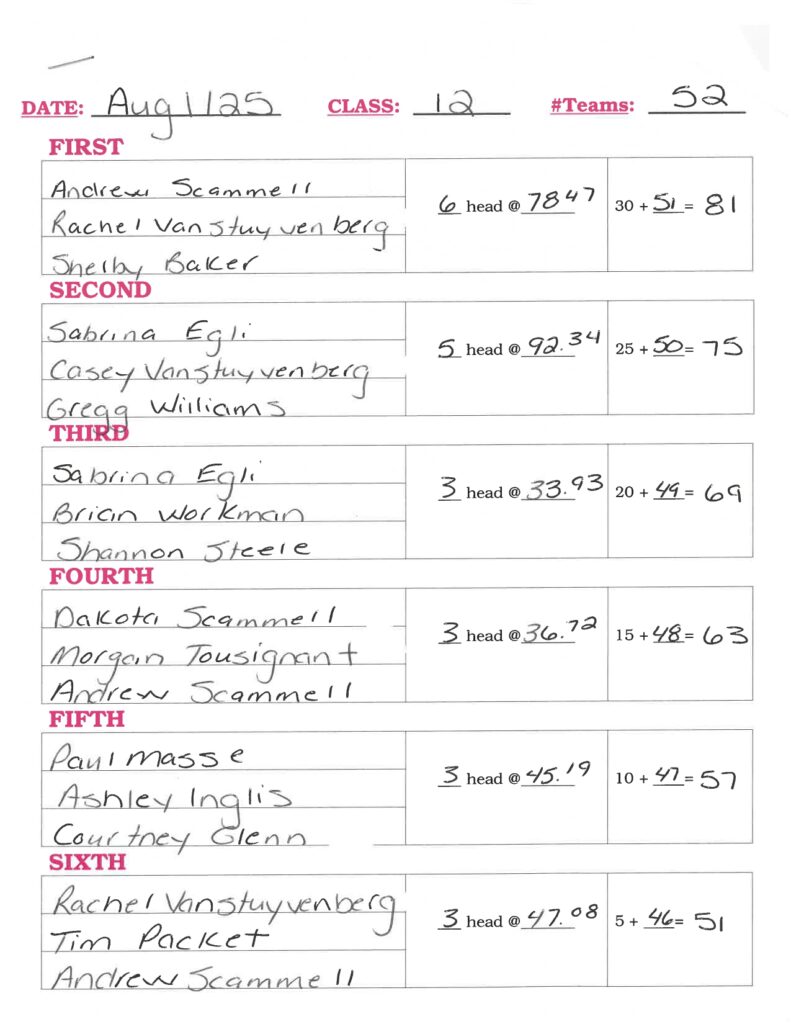 DATE: Aug 1/25 CLASS: 12 #Teams: 52
FIRST
Andrew Scammell
Rachel Vanstuyvenberg
Shelby Baker
6 head @ 78 47
30 + 51 = 81
SECOND
Sabrina Egli
Casey Vanstuyvenberg
Gregg Williams
5 head @ 92.34
25 + 50 = 75
THIRD
Sabrina Egli
Brian Workman
Shannon Steele
3 head @ 33.93
20 + 49 = 69
FOURTH
Dakota Scammell
Morgan Tousignant
Andrew Scammell
3 head @ 36.72
15 + 48 = 63
FIFTH
Paul Masse
Ashley Inglis
Courtney Glenn
3 head @ 45.19
10 + 47 = 57
SIXTH
Rachel Vanstuyvenberg
Tim Packet
Andrew Scammell
3 head @ 47.08
5 + 46 = 51